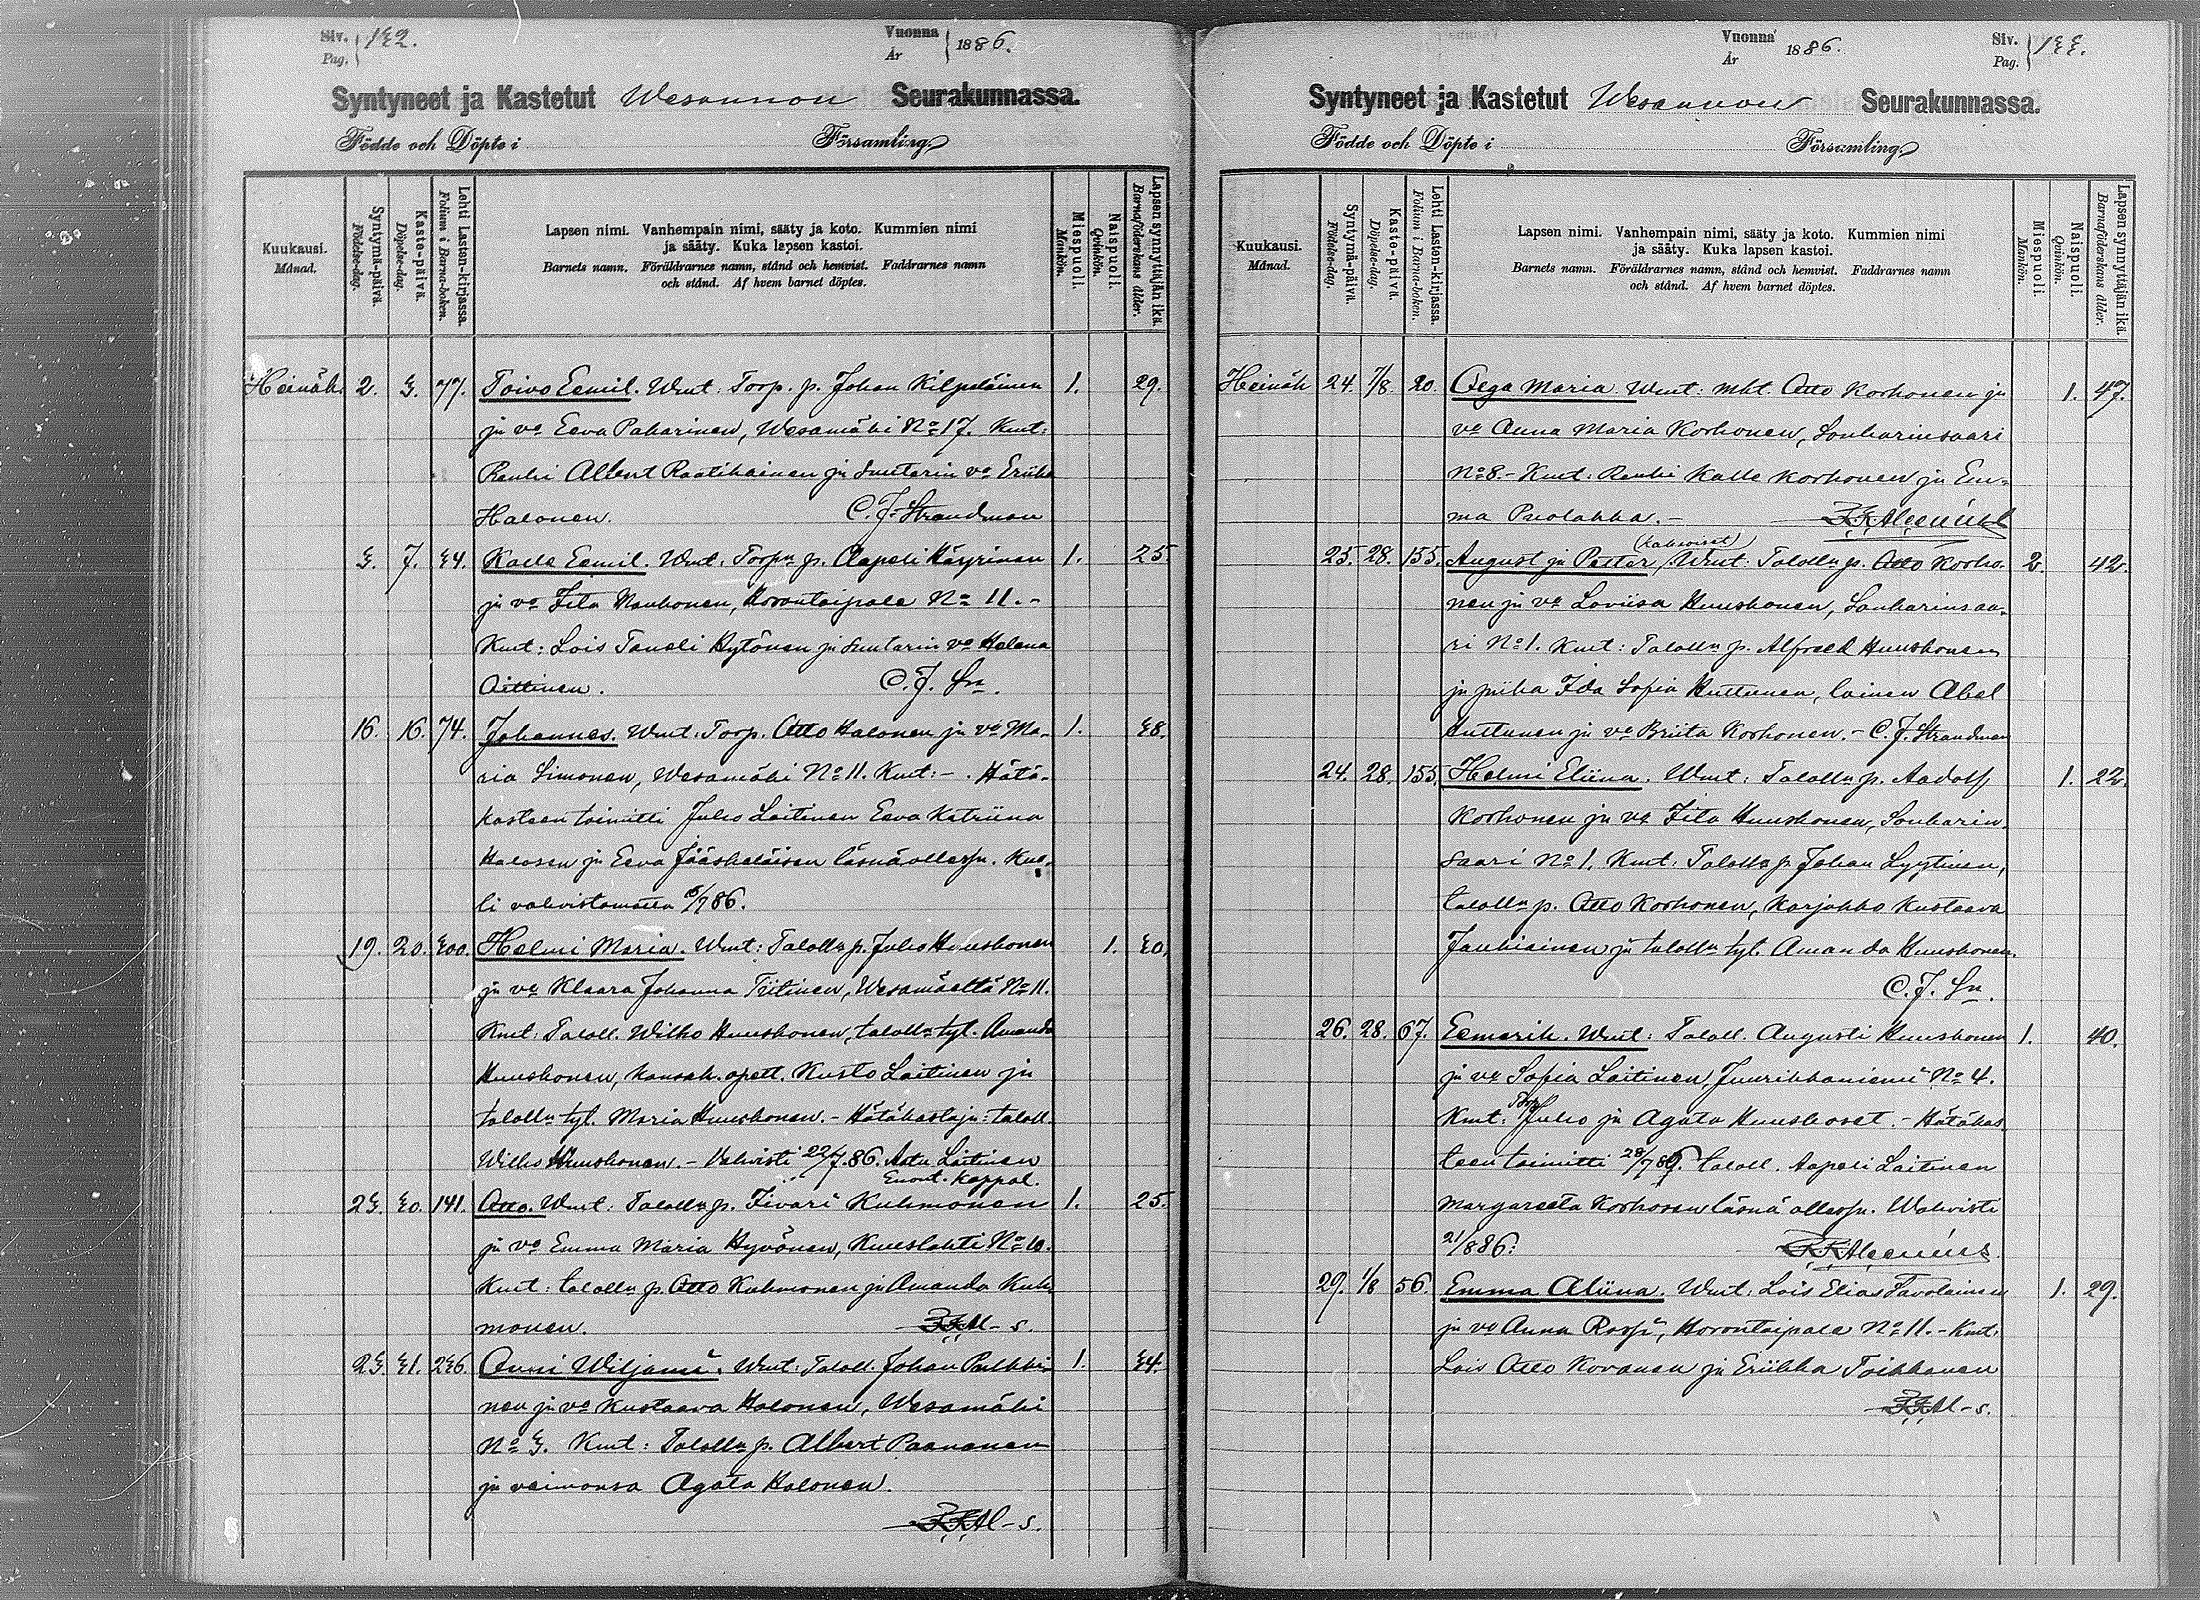 Siv. Pag. 132.
Vuonna År 1886.
Syntyneet ja Kastetut Wesannon Seurakunnassa.
Födde och Döpte i Församling.
Kuukausi. Månad.
Syntymä-päivä. Födelse-dag.
Kaste-päivä. Döpelse-dag.
Lehti Lasten-kirjassa. Folium i Barna-boken.
Lapsen nimi. Vanhempain nimi, sääty ja koto. Kummien nimi
ja sääty. Kuka lapsen kastoi.
Barnets namn. Föräldrarnes namn, stånd och hemvist. Faddrarnes namn
och stånd. Af hvem barnet döptes.
Miespuoli. Mankön.
Naispuoli. Qvinkön.
Lapsen synnyttäjän ikä. Barnaföderskans ålder.
Heinäk. 2. 3. 77. Toivo Eemil. Wmt: Torp. p. Johan Kilpeläinen 1. 29.
ja vo Eeva Pakarinen, Wesamäki No 17. Kmt:
Renki Albert Raatikainen ja suutarin vo Eriika
Halonen. C. F. Strandman
3. 7. 34. Kalle Eemil. Wmt: Torpn p. Aapeli Häyrinen 1. 25.
ja vo Fita Kauhonen, Horontaipale No 11. -
Kmt: Lois Taneli Hytönen ja suutarin vo Helena
Oittinen. C. F. Sn.
16. 16. 74. Johannes. Wmt: Torp. Otto Halonen ja vo Ma- 1. 38.
ria Simonen, Wesamäki No 11. Kmt: - . Hätä-
kasteen toimitti Juho Laitinen Eeva Katriina
Halosen ja Eeva Jääskeläisen läsnäollessa. Kuo-
li vahvistamatta /7 86.
19. 20. 300. Helmi Maria. Wmt: Talolln p. Juho Huuskonen 1. 30.
ja vo Klaara Johanna Tiitinen, Wesamäeltä No 11.
Kmt: Taloll. Wilho Huuskonen, talolln tyt. Amanda
Huuskonen, kansak. opett. Kusto Laitinen ja
talolln tyt. Maria Huuskonen. - Hätäkastaja: taloll.
Wilho Huuskonen. - Vahvisti 22/7. 86. Aatu Laitinen
Enont. kappal.
23. 30. 141. Otto. Wmt: Talolln p. Iivari Kuhmonen 1. 25.
ja vo Emma Maria Hyvönen, Kuuslahti No 10.
Kmt: talolln p. Otto Kuhmonen ja Amanda Kuh-
monen. K.K. Al-s.
23. 31. 236. Onni Wiljami. Wmt: Taloll. Johan Pulkki- 1. 34.
nen ja vo Kustaava Halonen, Wesamäki
No 3. Kmt: Talolln p. Albert Paananen
ja vaimonsa Agata Halonen.
K.K. Al-s.
Vuonna År 1886.
Siv. Pag. 133.
Syntyneet ja Kastetut Wesannon Seurakunnassa.
Födde och Döpte i Församling.
Kuukausi. Månad.
Syntymä-päivä. Födelse-dag.
Kaste-päivä. Döpelse-dag.
Lehti Lasten-kirjassa. Folium i Barna-boken.
Lapsen nimi. Vanhempain nimi, sääty ja koto. Kummien nimi
ja sääty. Kuka lapsen kastoi.
Barnets namn. Föräldrarnes namn, stånd och hemvist. Faddrarnes namn
och stånd. Af hvem barnet döptes.
Miespuoli. Mankön.
Naispuoli. Qvinkön.
Lapsen synnyttäjän ikä. Barnaföderskans ålder.
Heinäk 24. 7/8 20. Olga Maria Wmt: mkt. Otto Korhonen ja 1. 47.
vo Anna Maria Korhonen, Sonkarinsaari
No 8. - Kmt: Renki Kalle Korhonen ja Em-
ma Puolakka. -
(kaksoiset)
25. 28. 155. August ja Petter, Wmt: Talolln p. Otto Korho- 2. 42.
nen ja vo Loviisa Huuskonen, Sonkarinsaa-
ri No 1. Kmt: Talolln p. Alfred Huuskonen
ja piika Ida Sofia Huttunen, loinen Abel
Huttunen ja vo Briita Korhonen. - C. F. Strandman
24. 28. 155. Helmi Eliina. Wmt: Talolln p. Aadolf 1. 22.
Korhonen ja vo Fita Huuskonen, Sonkarin-
saari No 1. Kmt: Talolln p. Johan Lyytinen,
talolln p. Otto Korhonen, Karjakko Kustaava
Jauhiainen ja talolln tyt. Amanda Huuskonen.
C. F. Sn.
26. 28. 67. Eemerik. Wmt: Taloll. Augusti Huuskonen 1. 40.
ja vo Sofia Laitinen, Juurikkaniemi No 4.
Kmt: Torp. Juho ja Agata Huuskoset. - Hätäkas-
teen toimitti 28/7 86. taloll. Aapeli Laitinen
Margareeta Korhosen läsnä ollessa. Wahvisti
21/8 86:
29. 1/8 56. Emma Aliina. Wmt: Lois Elias Tavolainen 1. 29.
ja vo Anna Rossi, Horontaipale No 11. - Kmt:
Lois Otto Kovanen ja Eriikka Toikkanen
K.K. Al-s.